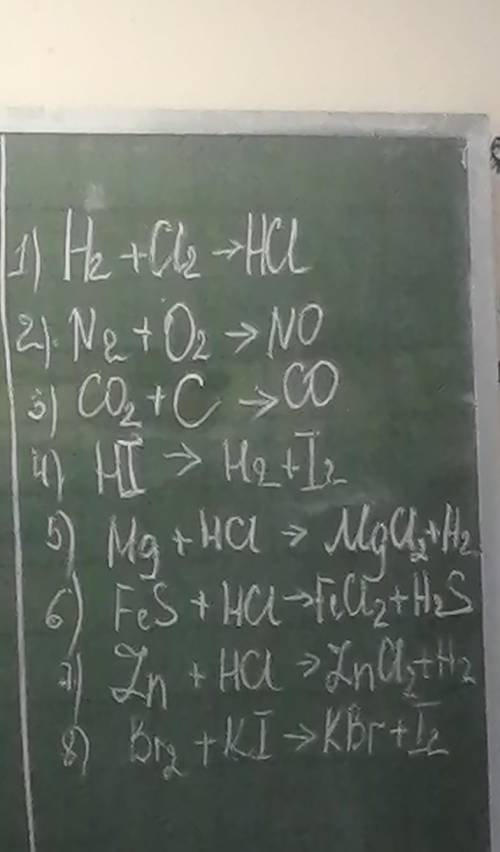 1) H₂ + Cl₂ → HCl
2) N₂ + O₂ → NO
3) CO₂ + C → CO
4) HI → H₂ + I₂
5) Mg + HCl → MgCl₂ + H₂
6) FeS + HCl → FeCl₂ + H₂S
7) Zn + HCl → ZnCl₂ + H₂
8) Br₂ + KI → KBr + I₂